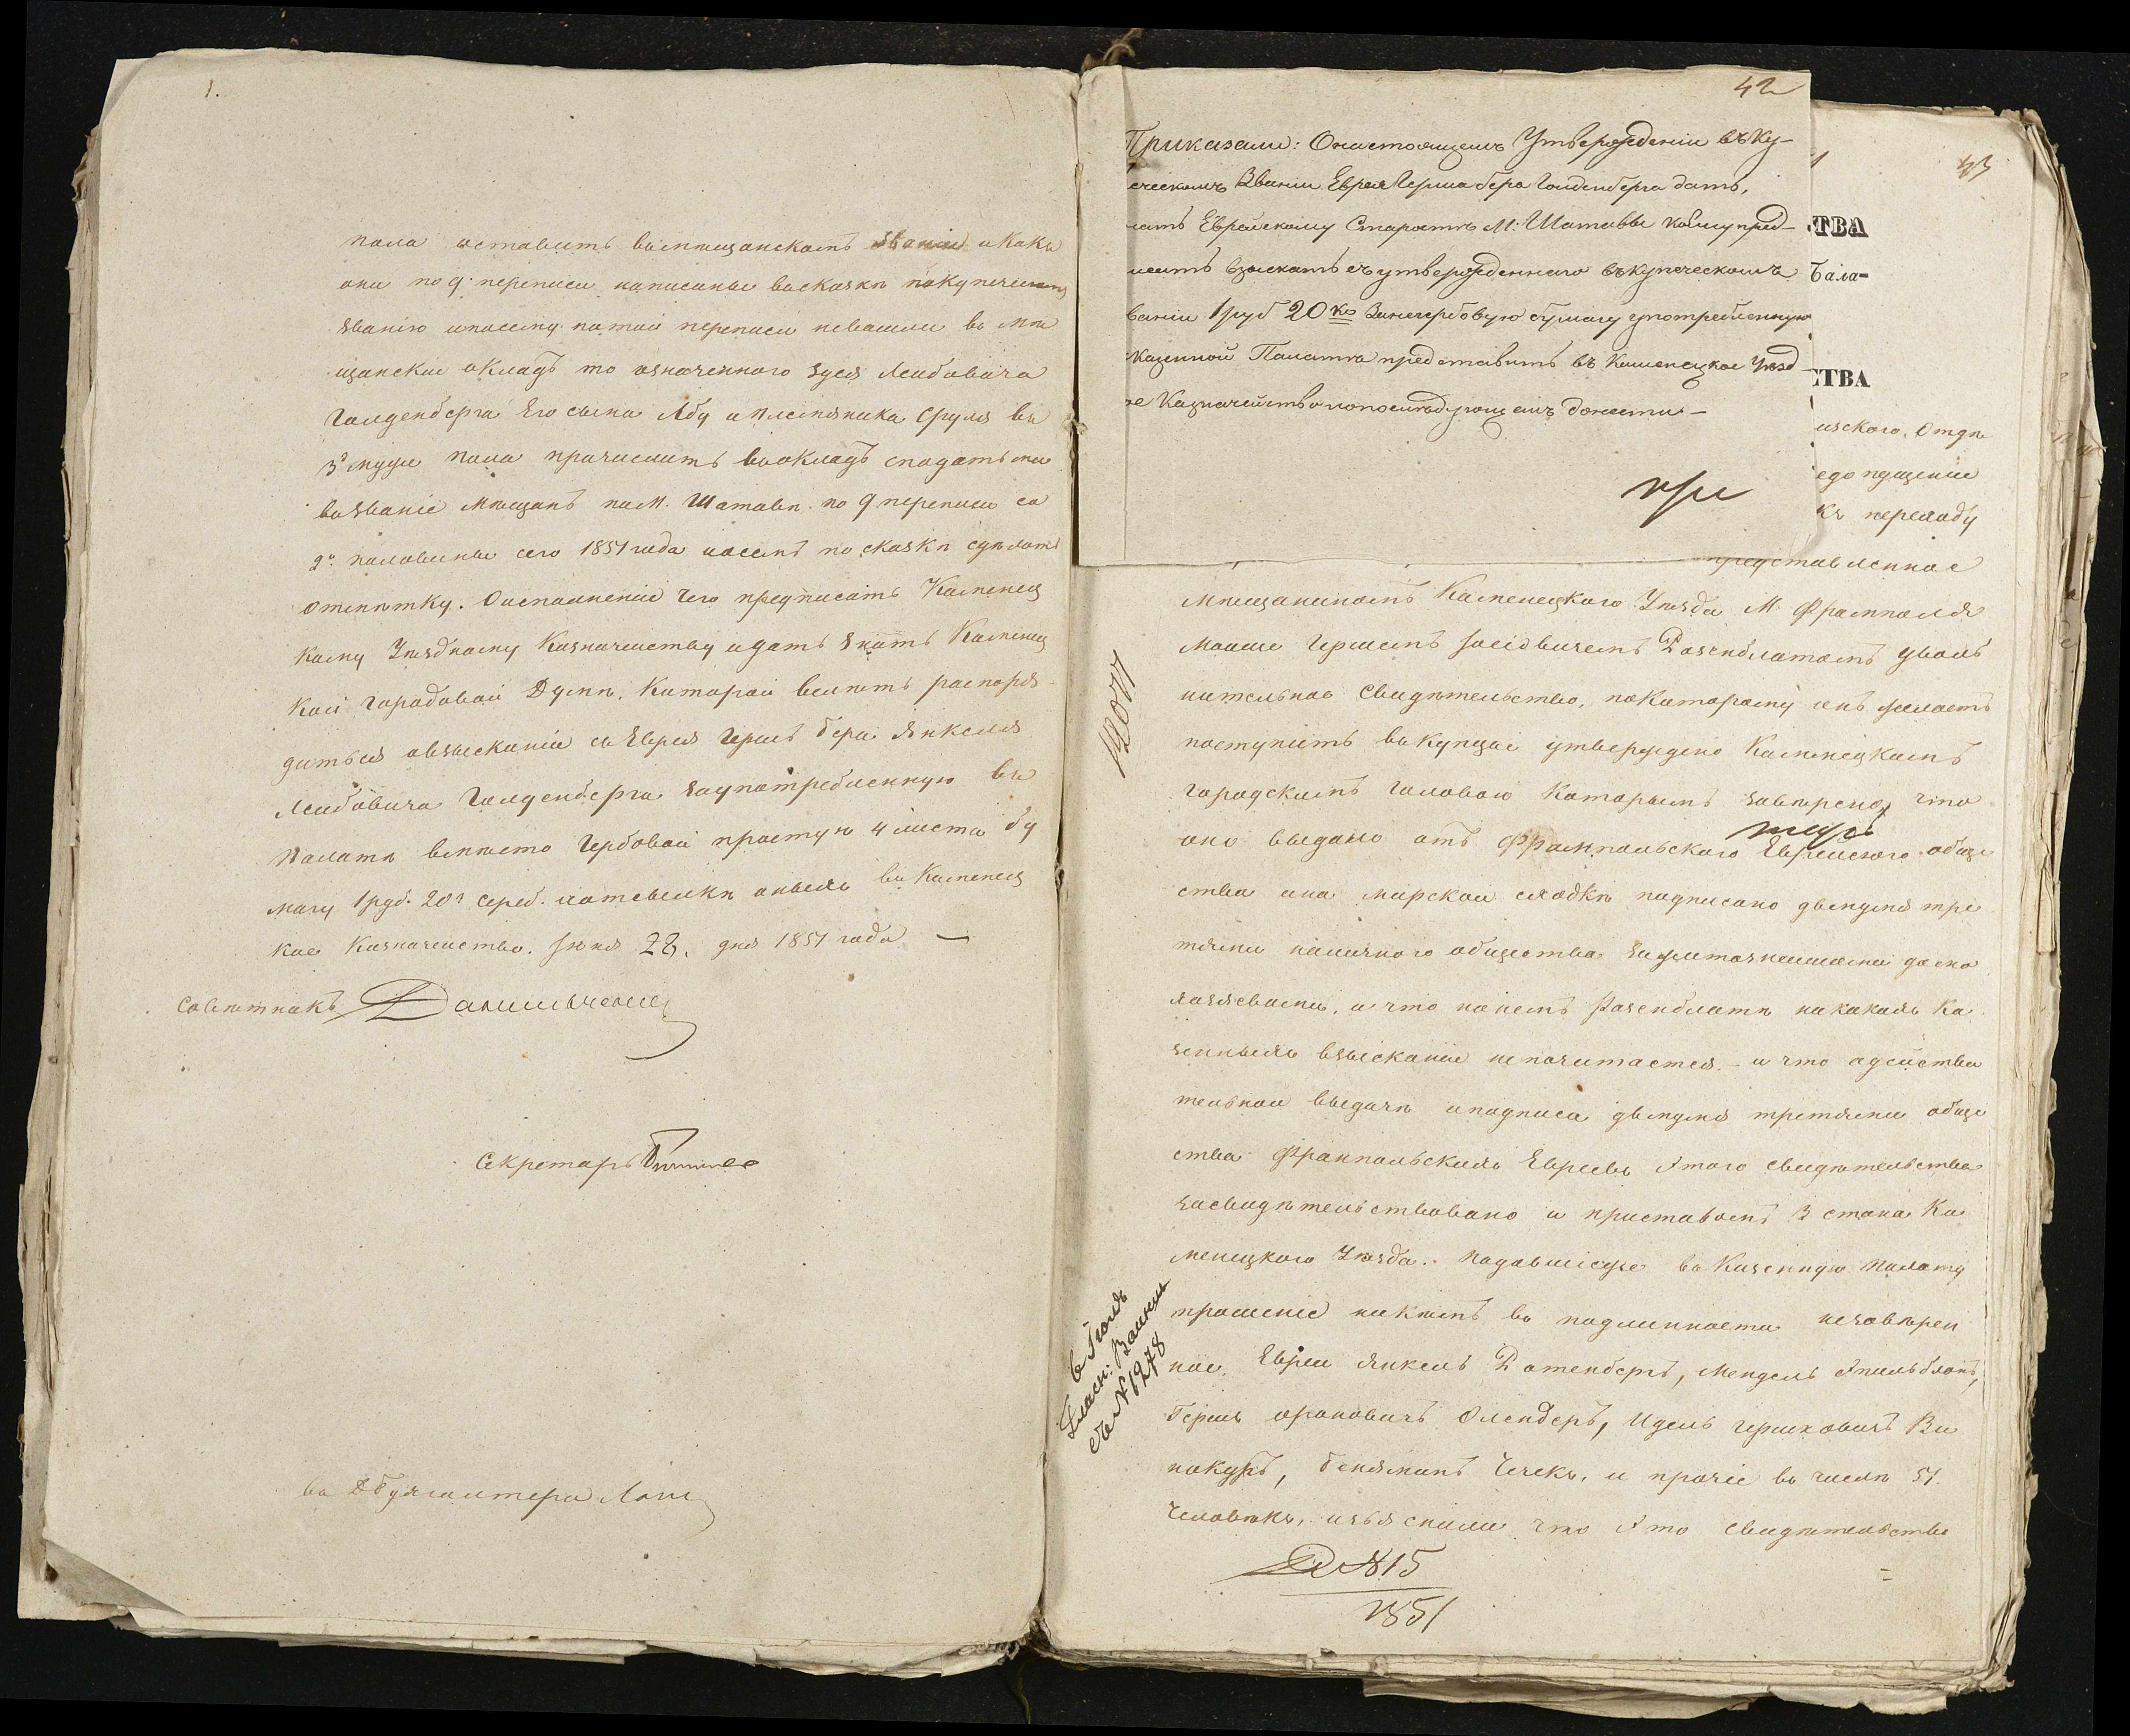 1.
пола оставить въ мѣщанскомъ званіи и какъ
они по 9 переписи написаны въ сказкѣ по купеческому
званію и посему по той переписи не вошли въ мѣ
щанскій окладъ то означенного Зуся Лейбовича
Голденберга его сына Абу и племяника Сруля въ
3 муж. пола причислить въ окладъ съ податьми
въ званіе мѣщанъ по М. Шатавѣ по 9 переписи со
2й половины сего 1851 года и о семъ по сказкѣ сдѣлать
отмѣтку. О исполненіи чего предписать Каменец
кому Уѣздному Казначейству и дать знать Каменец
кой Городовой Думѣ, которой велѣть распоря
диться о взысканіи съ Еврея Герш Бера Янкеля
Лейбовича Голденберга за употребленную въ
Палатѣ вмѣсто Гербовой простую 4 листа бу
магу 1 руб. 20 к сереб. и отсылкѣ оныхъ въ Каменец
кое Казначейство. Іюня 28. дня 1851 года —
Совѣтникъ Данильченко
Секретарь
за Бухгалтера
42
Приказали: О настоящемъ Утвержденіи въ Ку-
еческомъ Званіи Еврея Герша бера Голденберга дать,
нать Еврейскому Старостѣ М: Шатавы коему пред-
исать взыскать съ утвержденнаго въ купеческомъ
званіи 1 руб 20 ко За негербовую бумагу употребленную
Казенной Палатѣ представить въ Каменецкое Уѣзд
ое Казначейство и о послѣдующемъ донести —
43
ТВА
Бала-
СТВА
искаго. Отдѣ
едопущеніе
къ переходу
представленное
Мѣщаниномъ Каменецкого Уѣзда М. Фрамполя
Мошие Гершемъ Іосіовичемъ Розенблатомъ уволь
нительное Свидѣтельство, по которому онъ желаетъ
поступить въ купцы утверждено Каменецкимъ
Городскимъ Головою которымъ завѣрено, что
оно выдано отъ Фрампольского Еврейского обще
ства и на мірской сходкѣ подписано двумя тре
тями наличного общества зажиточнѣйшими домо
хозяевами, и что на немъ Розенблатѣ никакихъ Ка
зенныхъ взысканіе не почитается. – и что о дѣйстви
тельной выдачѣ и подписа двумя третями обще
ства Фрампольскихъ Евреевъ этого свидѣтельства
засвидѣтельствовано и приставомъ 3 стана Ка
менецкого Уѣзда. Подавшіеже въ Казенную Палату
прошеніе никѣмъ въ подлинности незавѣрен
ное, Евреи Янкель Ротенбергъ, Мендель
Герш Ароновичъ Олендеръ, Идель Гершковичъ Ви
нокуръ, Беняминъ Чечекъ. и прочіе въ числѣ 51.
Человѣкъ. изъяснили что это свидѣтельство
12077
съ № 1278
Д № 15
1851